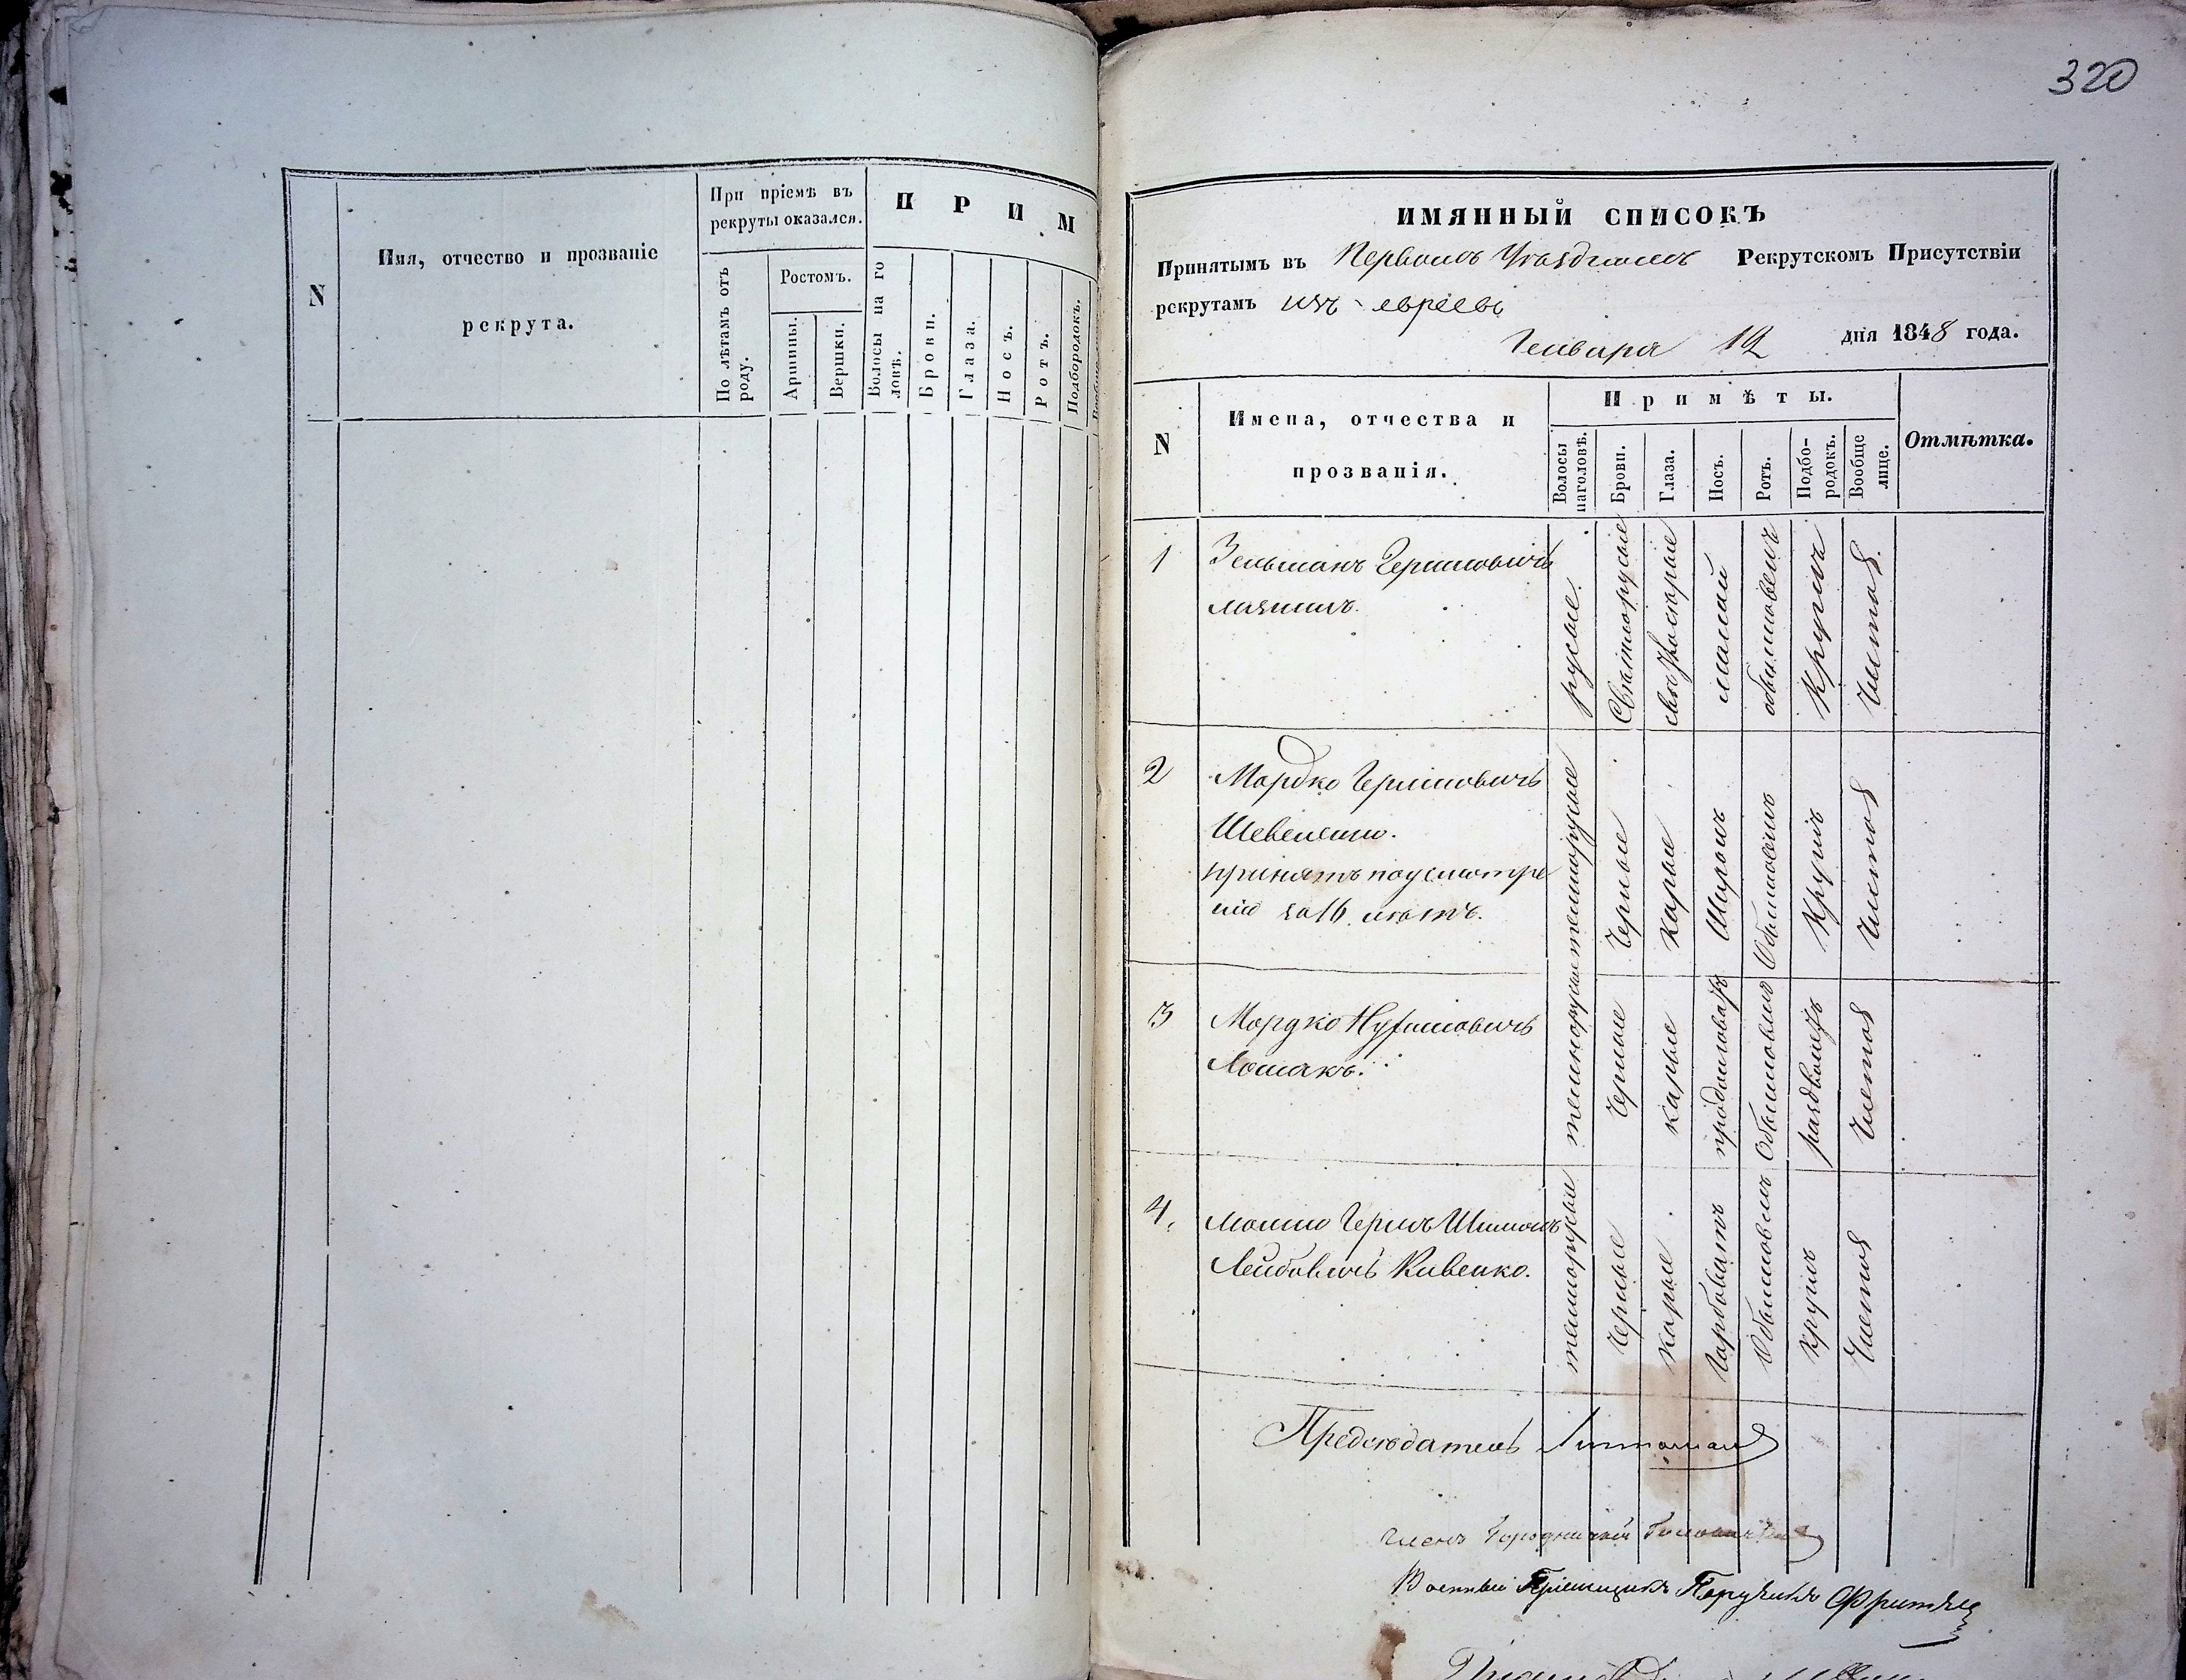 N
Имя, отчество и прозваніе
рекрута.
При пріемѣ въ
рекруты оказался.
По лѣтамъ отъ
роду.
Ростомъ.
Аршины.
Вершки.
П Р И М
Волосы на го
ловѣ.
Брови.
Глаза.
Носъ.
Ротъ.
Подбородокъ.
320
ИМЯННЫЙ СПИСОКЪ
Принятымъ въ Первомъ Уѣздномъ Рекрутскомъ Присутствіи
рекрутамъ изъ евреевъ
Генваря 12 дня 1848 года.
N
Имена, отчества и
прозванія.
Примѣты.
Волосы
наголовѣ.
Брови.
Глаза.
Носъ.
Ротъ.
Подбо-
родокъ.
Вообще
лице.
Отмѣтка.
1
Зельманъ Гершковичъ
русые.
Свѣтлорусые
малый
обыкновенъ
Круглъ
Чистое.
2
Мордко Гершковичъ
принятъ поусмотре
нію за 16 лѣтъ.
темнорусые
Черные
Карые
Обыкновенъ
Круглъ
Чистое
3
Мордко
Лошакъ.
темнорусые
Черные
карые
продолговатъ
Обыкновенъ
раздвоенъ
Чистое
4.
Мошко Гершъ
Лейбовичъ Кивенко.
темнорусые
Черные
Карые
Горбоватъ
Обыкновенъ
круглъ
Чистое
Предсѣдатель
Членъ Городничій
Военный Пріемщикъ Поручикъ